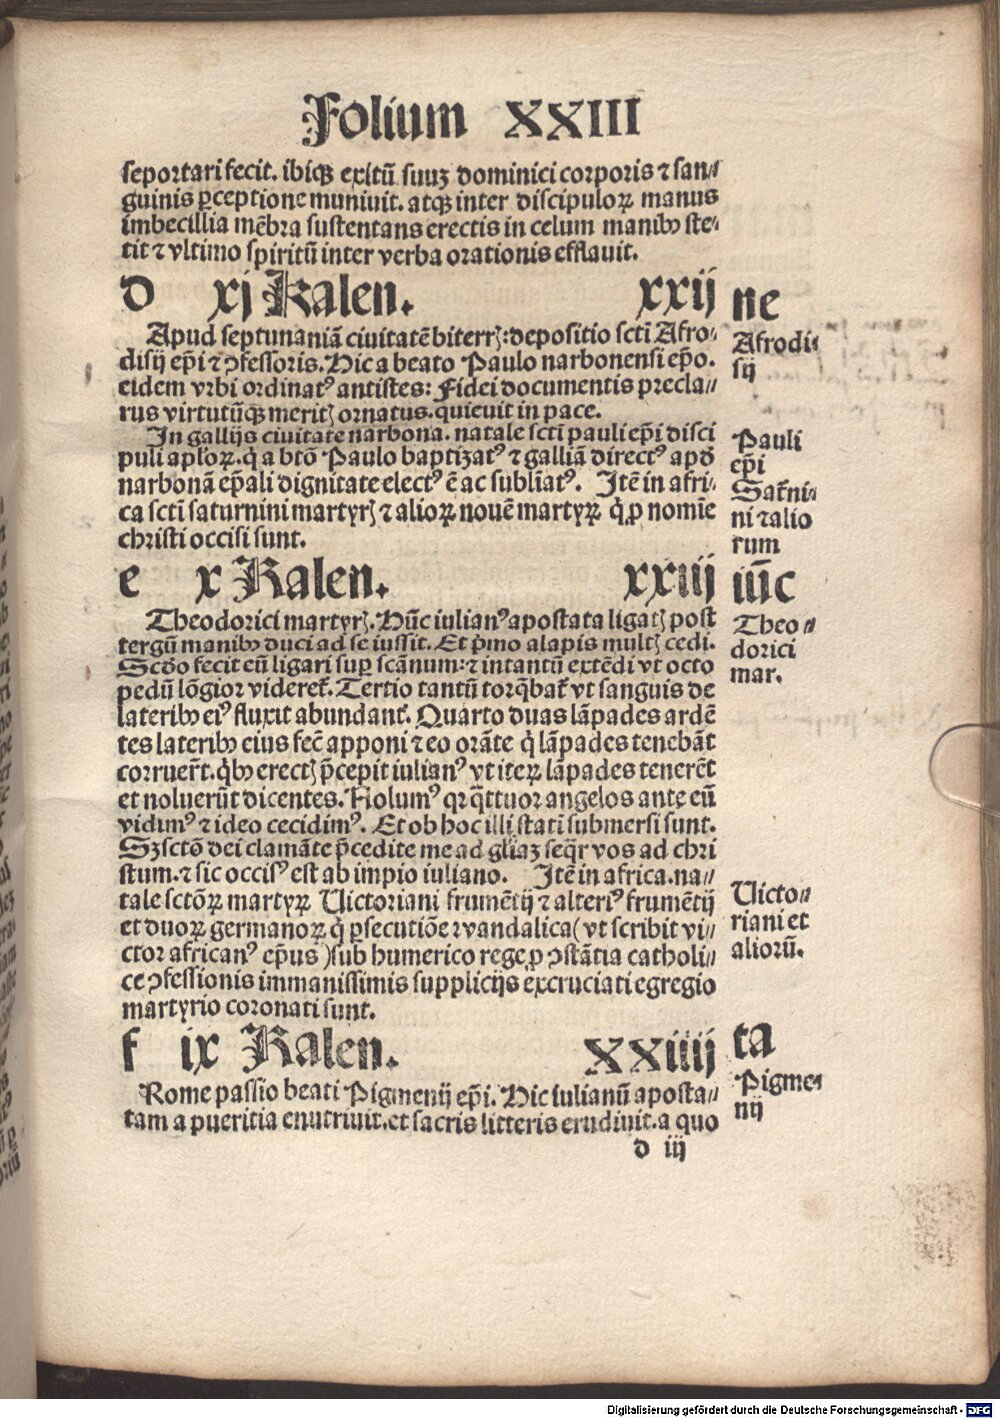 Folium XXIII
seportari fecit. ibiqꝫ exitū suuꝫ dominici corporis ⁊ san⸗
guinis ꝑceptione muniuit. atqꝫ inter discipuloꝝ manus
imbecillia mēbra sustentans erectis in celum manibꝰ ste⸗
tit ⁊ vltimo spiritū inter verba orationis efflauit.
d xj Kalen. xxij ne
Apud septunaniā ciuitatē biterrꝭ: depositio scti Afro⸗
disij ep̄i ⁊ ꝯfessoris. Hic a beato Paulo narbonensi ep̄o.
eidem vrbi ordinatꝰ antistes: Fidei documentis precla⸗
rus virtutūqꝫ meritꝭ ornatus. quieuit in pace.
Afrodi⸗
sij
In gallijs ciuitate narbona. natale scti pauli ep̄i disci
puli aplōꝝ. q̇ a btō Paulo baptizatꝰ ⁊ galliā directꝰ apd̄
narbonā ep̄ali dignitate electꝰ ē ac sublīatꝰ. Itē in afri⸗
ca scti saturnini martyrꝭ ⁊ alioꝝ nouē martyꝝ q̇ ꝓ nomīe
christi occisi sunt.
Pauli
ep̄i
Sat̄ni⸗
ni ⁊ alio
rum
e x Kalen. xxiij iūc
Theodorici martyrꝭ. Hūc iulianꝰ apostata ligatꝭ post
tergū manibꝰ duci ad se iussit. Et pͥmo alapis multꝭ cedi.
Scd̄o fecit eū ligari suꝑ scānum: ⁊ intantū extēdi vt octo
pedū lōgior videret̄. Tertio tantū torq̄bat̄ vt sanguis de
lateribꝰ eiꝰ fluxit abundant̄. Quarto duas lāpades ardē
tes lateribꝰ eius fec̄ apponi ⁊ eo orāte q̇ lāpades tenebāt
corruer̄t. q̇bꝰ erectꝭ p̄cepit iulianꝰ vt iteꝝ lāpades tenerēt
et noluerūt dicentes. Nolumꝰ qr q̄ttuor angelos ante eū
vidimꝰ ⁊ ideo cecidimꝰ. Et ob hoc illi stati submersi sunt.
Sꝫ sctō dei clamāte p̄cedite me ad gl̄iaꝫ seq̄r vos ad chri
stum. ⁊ sic occisꝰ est ab impio iuliano. Itē in africa. na⸗
tale sctōꝝ martyꝝ Victoriani frumētij ⁊ alteriꝰ frumētij
et duoꝝ germanoꝝ q̇ ꝑsecutiōe vvandalica (vt scribit vi⸗
ctor africanꝰ ep̄us) sub humerico rege ꝓ ꝯstātia catholi⸗
ce ꝯfessionis immanissimis supplicijs excruciati egregio
martyrio coronati sunt.
Theo⸗
dorici
mar.
Victo⸗
riani et
aliorū.
f ix Kalen. XXiiij ta
Rome passio beati Pigmenij ep̄i. Hic iulianū aposta⸗
tam a pueritia enutriuit. et sacris litteris erudiuit. a quo
Pigme⸗
nij
d iij
Digitalisierung gefördert durch die Deutsche Forschungsgemeinschaft - DFG